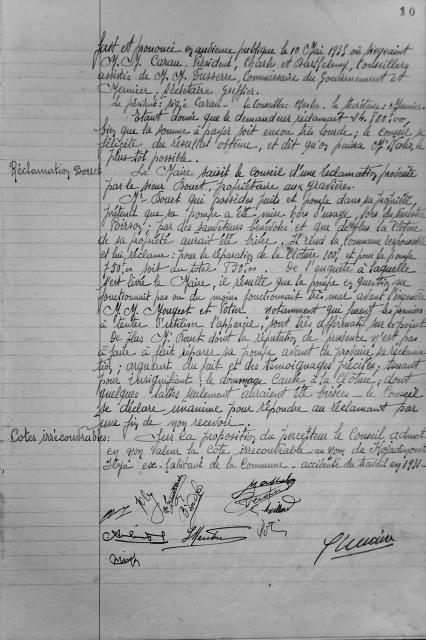 10
fait et prononcé en audience publique le 10 Mai 1935 où siégeaient
M.M. Caran. Président, Charles et Barthelemy, Conseillers
assistés de M.M. Dusserre, Commissaire du Gouvernement et
Meunier, Secrétaire Greffier.
Le président: signé Caran. Le Conseiller: Le Secrétaire: Meunier.
Etant donné que le demandeur réclamait 24.800,00,
bien que la somme à payer soit encore très lourde; le Conseil se
félicite du résultat obtenu, et dit qu'on paiera Mr le
plus tôt possible.
Réclamation Bouet
Le Maire saisit le Conseil d'une réclamation produite
par le sieur Bouet, propriétaire aux gravières.
Mr Bouet qui possède puits et pompe dans sa propriété,
prétend que sa pompe a été mise hors d'usage, lors du sinistre
Poirson; par des sauveteurs bénévoles et que de plus la clôture
de sa propriété aurait été brisée. Il rend la Commune responsable
et lui réclame: pour la réparation de la clôture 100, et pour la pompe
750,00 soit au total 850,00. De l'enquête à laquelle
s'est livré le Maire, il résulte que la pompe en question ne
fonctionnait pas ou du moins fonctionnait très mal avant l'incendie
M.M. Mougeot et Votier notamment qui furent les premiers
à tenter d'utiliser l'appareil, sont très affirmatifs sur ce point
De plus Mr Bouet dont la réputation de n'est pas
à faire a fait réparer sa pompe avant de produire sa réclama-
tion; arguant du fait et des témoignages précités; tenant
pour insignifiant le dommage causé à la clôture; dont
quelques lattes seulement auraient été brisées - le Conseil
se déclare unanime pour répondre au réclamant par
une fin de non recevoir.
Cotes irrécouvrables:
Sur la proposition du percepteur le Conseil admet
en non valeur la cote irrécouvrable au nom de
ex. habitant de la Commune - accidenté du travail en 1931.